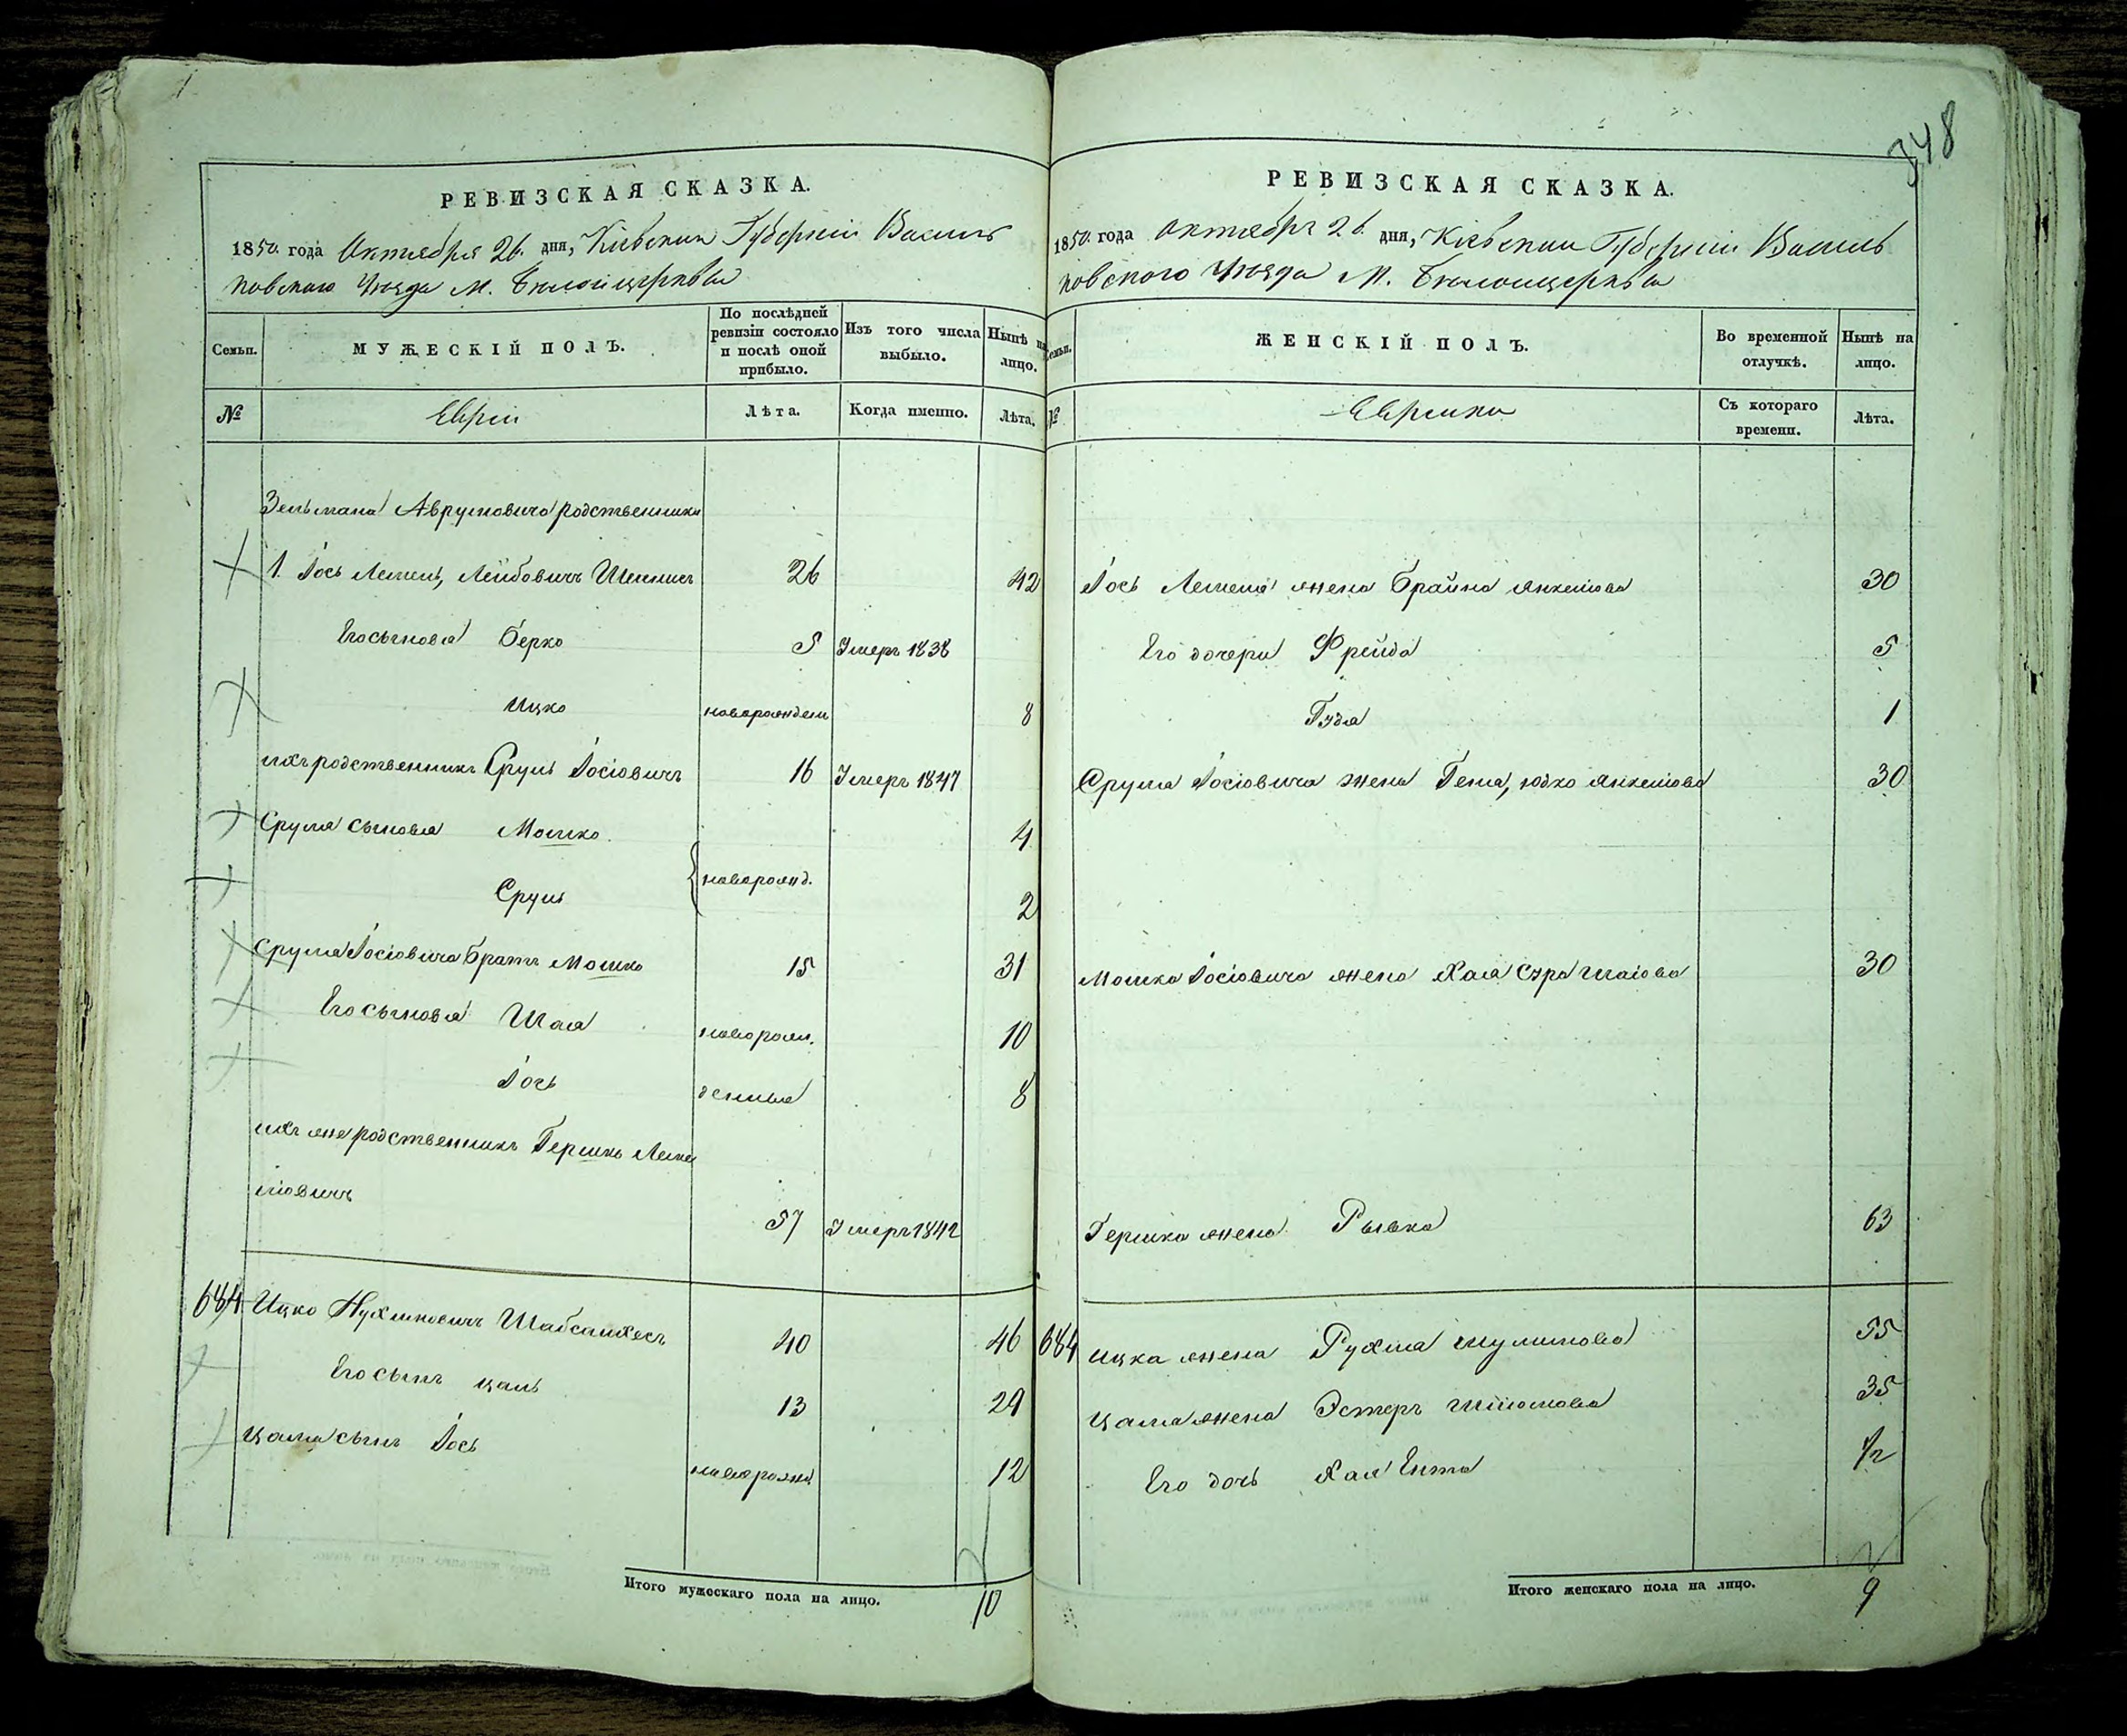 348
РЕВИЗСКАЯ СКАЗКА.
1850. года Октября 26. дня, Кіевскии Губерніи Василь
ковскаго Уезда М. Белоицеркви
Семьи.
МУЖЕСКІЙ ПОЛЪ.
По послѣдней ревизіи состояло и послѣ оной прибыло.
Изъ того числа выбыло.
Нынѣ на лицо.
№
Евреи
Лѣта.
Когда именно.
Лѣта.
Зельмана Аврумовича родственники
1. Іось Лемель, Лейбовичъ 26 42
Его сыновья Берко 5 Умеръ 1838
Ицко новорожден 8
ихъ родственникъ Сруль Іосіовичъ 16 Умеръ 1847
Сруля сыновья Мошко 4
новорожд.
Сруль 2
Сруля Іосіовича братъ Мошко 15 31
Его сыновья Шая новорож. 10
Іось денныя 8
ихъ же родственникъ Гершко
іовичъ 57 Умеръ 1842
684 Ицко Нухимовичъ 40 46
Его сынъ Цаль 13 29
Цаля сынъ Іось новорожд 12
Итого мужескаго пола на лицо. 10
РЕВИЗСКАЯ СКАЗКА.
1850. года Октября 26. дня, Кіевскии Губерніи Василь
ковского Уезда М. Белоицеркви
Семьи.
ЖЕНСКІЙ ПОЛЪ.
Во временной отлучкѣ.
Нынѣ на лицо.
№
Еврейки
Съ котораго времени.
Лѣта.
Іось Лемеля жена Брайна Янкелiова 30
Его дочери Фрейда 5
Гудя 1
Сруля Іосіовича жена Геня, Юдко Янкелiова 30
Мошка Іосіовича жена Хая Сура Шаіова 30
Гершка жена Рывка 63
684 Ицка жена Рухля Шулимова 55
Цаля жена Эстеръ 35
Его дочь Хая Ента 1/2
Итого женскаго пола на лицо. 9